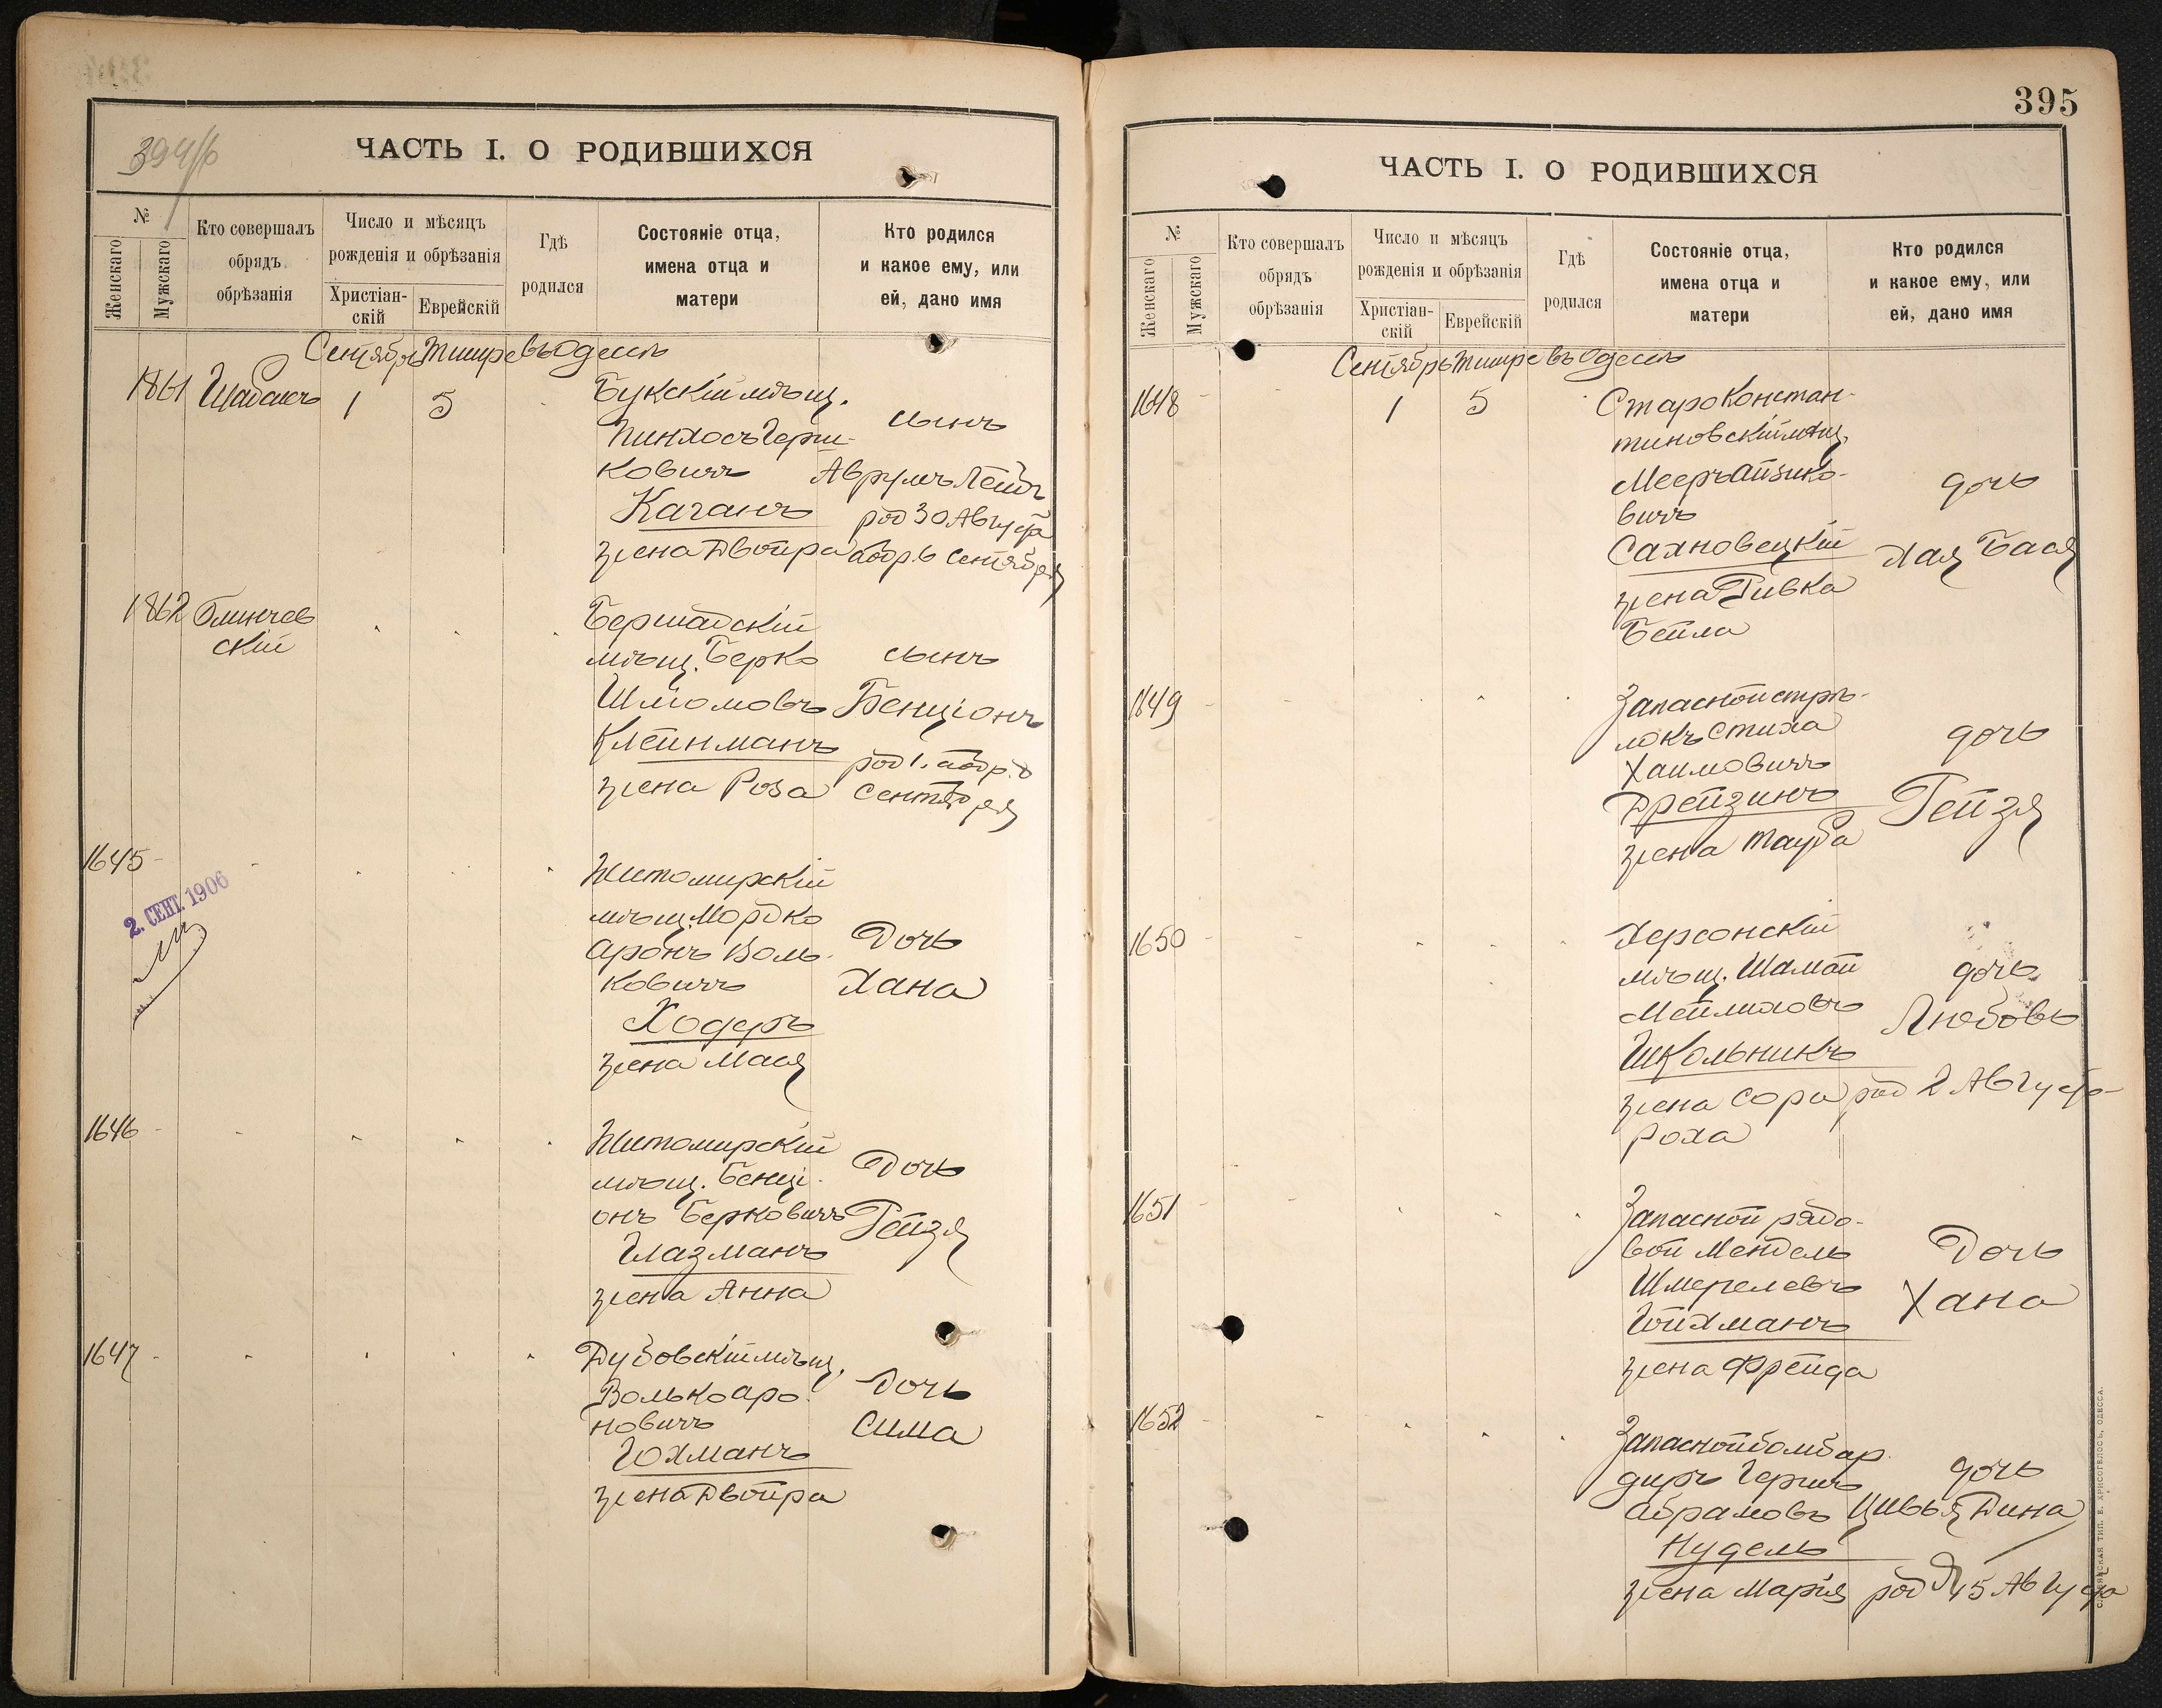 394/б
ЧАСТЬ I. О РОДИВШИХСЯ
№
Женскаго
Мужскаго
Кто совершалъ
обрядъ
обрѣзанія
Число и мѣсяцъ
рожденія и обрѣзанія
Христіан-
скій
Еврейскій
Гдѣ
родился
Состояніе отца,
имена отца и
матери
Кто родился
и какое ему, или
ей, дано имя
Сентябрь Тишре въ Одессѣ
1861 1 5 Букскій мѣщ.
Пинхосъ Герш-
ковичъ
Каганъ
жена Двойра
сынъ
Аврумъ Лейбъ
род 30 Августа
обр. 6 Сентября
1862 Блинчев
скій
Бершадскій
мѣщ. Берко
Шліомовъ
Клейнманъ
жена Роза
сынъ
Бенціонъ
род 1. обр. 8
Сентября
1645
2. СЕНТ. 1906
Житомирскій
мѣщ. Мордко
Аронъ Воль-
ковичъ
Ходеръ
жена Мася
Дочь
Хана
1646
Житомирскій
мѣщ. Бенці-
онъ Берковичъ
Глазманъ
жена Анна
Дочь
Рейзя
1647
Дубовскій мѣщ.
Волько Аро-
новичъ
Гохманъ
жена Двойра
Дочь
Сима
395
ЧАСТЬ I. О РОДИВШИХСЯ
№
Женскаго
Мужскаго
Кто совершалъ
обрядъ
обрѣзанія
Число и мѣсяцъ
рожденія и обрѣзанія
Христіан-
скій
Еврейскій
Гдѣ
родился
Состояніе отца,
имена отца и
матери
Кто родился
и какое ему, или
ей, дано имя
Сентябрь Тишре въ Одессѣ
1648 1 5 Староконстан-
тиновскій мѣщ.
Мееръ Айзико-
вичъ
Сахновецкій
жена Ривка
Бейла
дочь
Хая Бася
1649
Запасной стрѣ-
локъ Стиха
Хаимовичъ
Дрейзинъ
жена Тауба
дочь
Рейзя
1650
Херсонскій
мѣщ. Шамай
Мейлиховъ
Школьникъ
жена Сора
Роха
дочь
Любовь
род 2 Августа
1651
Запасной рядо-
вой Мендель
Шмерелевъ
Гойхманъ
жена Фрейда
Дочь
Хана
1652
Запасной бомбар
диръ Гершъ
Абрамовъ
Нудель
жена Марія
дочь
Цивья Дина
род 15 Августа
СЛАВЯНСКАЯ ТИП. Е. ХРИСОГЕЛОСЪ, ОДЕССА.